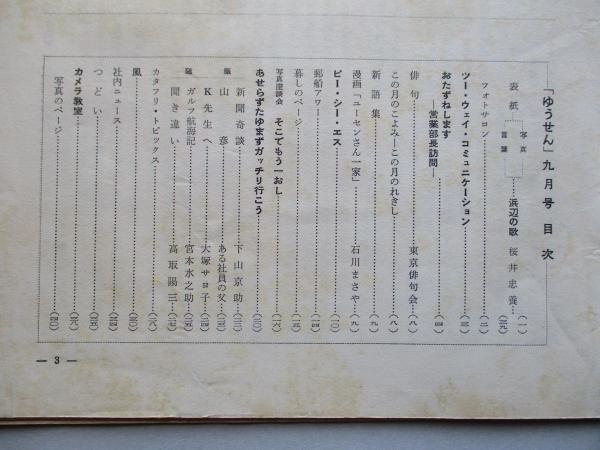 「ゆうせん」九月号 目次
表紙 写真 言葉 ……浜辺の歌 桜井忠養……(一)
フォトサロン……(二)
ツー・ウェイ・コミュニケーション……(三)
おたずねします
―営業部長訪問―……(四)
俳句……東京俳句会……(八)
この月のこよみ―この月のれきし……(八)
新語集……(九)
漫画「ユーセンさん一家」……石川まさや……(九)
ピー・シー・エス……(一〇)
郵船アワー……(一四)
暮しのページ……(一五)
写真座談会 そこでもう一おし……(一六)
あせらずたゆまずガッチリ行こう……(二〇)
新聞奇談……下山京助……(二二)
山彦……ある社員の父……(二三)
K先生へ……大塚サヨ子……(二四)
ガルフ航海記……宮本水之助……(二五)
聞き違い……高取陽三……(二七)
カタフリ・トピックス……(二八)
風……(三〇)
社内ニュース……(三四)
つどい……(三五)
カメラ教室……(三八)
写真のページ……(四〇)
― 3 ―